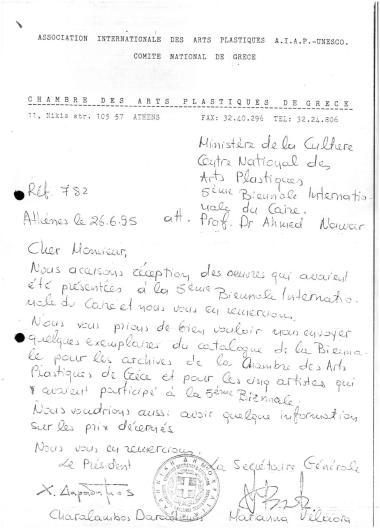 ASSOCIATION INTERNATIONALE DES ARTS PLASTIQUES A.I.A.P.-UNESCO.
COMITE NATIONAL DE GRECE
CHAMBRE DES ARTS PLASTIQUES DE GRECE
11, Nikis str. 105 57 ATHENS FAX: 32.40.296 TEL: 32.24.806
Ministère de la Culture
Centre National des
Arts Plastiques
Réf. 782
5ème Biennale Internatio-
nale du Caire.
Athènes le 26.6.95 att. Prof. Dr Ahmed Nawar
Cher Monsieur,
Nous accusons réception des œuvres qui avaient
été présentées à la 5ème Biennale Internatio-
nale du Caire et nous vous en remercions.
Nous vous prions de bien vouloir nous envoyer
quelques exemplaires du catalogue de la Bienna-
le pour les archives de la Chambre des Arts
Plastiques de Grèce et pour les cinq artistes qui
y avaient participé à la 5ème Biennale.
Nous voudrions aussi avoir quelque information
sur les prix décernés
Nous vous en remercions.
Le Président La Secrétaire Générale
Charalambos Marianna